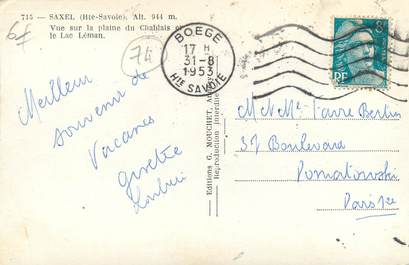 715 - SAXEL (Hte-Savoie). Alt. 944 m.
Vue sur la plaine du Chablais et
le Lac Léman.
6f
74
BOEGE
17 H
31-8
1953
Hte SAVOIE
RF
Meilleur
souvenir de
Vacances
ginette
Editions G. MOUCHET
Reproduction interdite
M M Favre Bertin
37 Boulevard
Poniatowski
Paris 12e